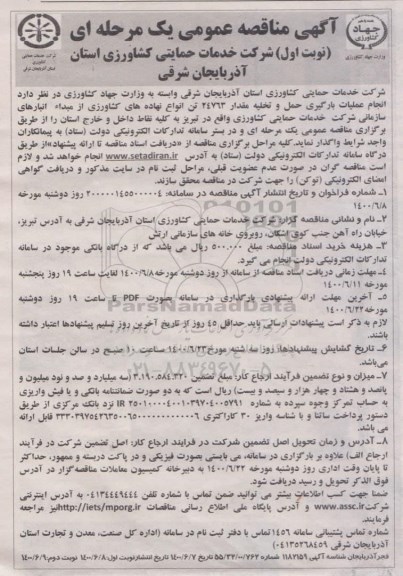 آگهی مناقصه عمومی یک مرحله ای
(نوبت اول) شرکت خدمات حمایتی کشاورزی استان
آذربایجان شرقی
وزارت جهاد کشاورزی
شرکت خدمات حمایتی کشاورزی استان آذربایجان شرقی وابسته به وزارت جهاد کشاورزی در نظر دارد
انجام عملیات بارگیری حمل و تخلیه مقدار ۲۴۷۶۳ تن انواع نهاده های کشاورزی از مبداء انبارهای
سازمانی شرکت خدمات حمایتی کشاورزی واقع در تبریز به کلیه نقاط داخل و خارج استان را از طریق
برگزاری مناقصه عمومی یک مرحله ای و در بستر سامانه تدارکات الکترونیکی دولت (ستاد) به پیمانکاران
واجد شرایط واگذار نماید. کلیه مراحل برگزاری مناقصه از «دریافت اسناد مناقصه تا ارائه پیشنهاد» از طریق
درگاه سامانه تدارکات الکترونیکی دولت (ستاد) به آدرس www.setadiran.ir انجام خواهد شد و لازم
است مناقصه گران در صورت عدم عضویت قبلی، مراحل ثبت نام در سایت مذکور و دریافت گواهی
امضای الکترونیکی (توکن) را جهت شرکت در مناقصه محقق سازند.
۱ـ شماره فراخوان و تاریخ انتشار آگهی مناقصه در سامانه: روز دوشنبه مورخه
۱۴۰۰/۶/۸
۲ـ نام و نشانی مناقصه گزار: شرکت خدمات حمایتی کشاورزی استان آذربایجان شرقی به آدرس تبریز،
خیابان راه آهن جنب کوی اشکان، روبروی خانه های سازمانی ارتش
۳ـ هزینه خرید اسناد مناقصه: مبلغ ۵۰۰.۰۰۰ ریال می باشد که از درگاه بانکی موجود در سامانه
تدارکات الکترونیکی دولت انجام می گیرد.
۴ـ مهلت زمانی دریافت اسناد مناقصه از سامانه از روز دوشنبه مورخه ۱۴۰۰/۶/۸ لغایت ساعت ۱۹ روز پنجشنبه
مورخه ۱۴۰۰/۶/۱۱
۵ـ آخرین مهلت ارائه پیشنهادی بارگذاری در سامانه بصورت PDF تا ساعت ۱۹ روز دوشنبه
مورخه ۱۴۰۰/۶/۲۲
لازم به ذکر است پیشنهادات ارسالی باید حداقل ۴۵ روز از تاریخ آخرین روز تسلیم پیشنهادها اعتبار داشته
باشند.
۶ـ تاریخ گشایش پیشنهادها: روز سه شنبه مورخ ۱۴۰۰/۶/۲۳ ساعت ۱۰ صبح در سالن جلسات استان
می‌باشد.
۷ـ میزان و نوع تضمین فرآیند ارجاع کار: مبلغ تضمین ۳.۱۹۰.۵۸۴.۳۲۰ (سه میلیارد و صد و نود میلیون و
پانصد و هشتاد و چهار هزار و سیصد و بیست) ریال است که به دو صورت ضمانتنامه بانکی و یا فیش واریزی
به حساب تمرکز وجوه سپرده به شماره IR نزد بانک مرکزی از طریق
دستور پرداخت ساتنا و با شناسه واریز ۳۰ کاراکتری قابل ارائه
می باشد.
۸ـ آدرس و زمان تحویل اصل تضمین شرکت در فرایند ارجاع کار: اصل تضمین شرکت در فرآیند
ارجاع (الف) علاوه بر بارگذاری در سامانه، می بایستی بصورت فیزیکی و در پاکت دربسته و ممهور، حداکثر
تا پایان وقت اداری روز دوشنبه مورخه ۱۴۰۰/۶/۲۲ به دبیرخانه کمیسیون معاملات مناقصه گزار در آدرس
فوق الذکر تحویل و رسید دریافت شود.
ضمنا جهت کسب اطلاعات بیشتر می توانید ضمن تماس با شماره تلفن ۰۴۱۳۴۴۴۹۴۴۴ به آدرس اینترنتی
شرکت www.assc.ir و آدرس پایگاه ملی اطلاع رسانی مناقصات http://iets/mporg.ir نیز مراجعه
فرمایند
شماره تماس پشتیبانی سامانه ۱۴۵۶ تماس با دفتر ثبت نام در سامانه (اداره کل صنعت، معدن و تجارت استان
آذربایجان شرقی ۰۴۱۳۵۲۶۸۴۵۹)
خبر آذربایجان شناسه آگهی ۱۱۸۲۱۵۹ شماره ۵۵/۳۲/۰۰/۷۶۲ تاریخ ۱۴۰۰/۶/۷ تاریخ انتشار نوبت اول: ۱۴۰۰/۶/۸ نوبت دوم: ۱۴۰۰/۶/۹
ParsNamadData
۰۲۱-۸۸۳۴۹۶۷۰-۵